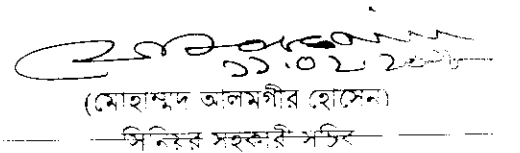 ১১.০২.২০
(মোহাম্মদ আলমগীর হোসেন)
সিনিয়র সহকারী সচিব